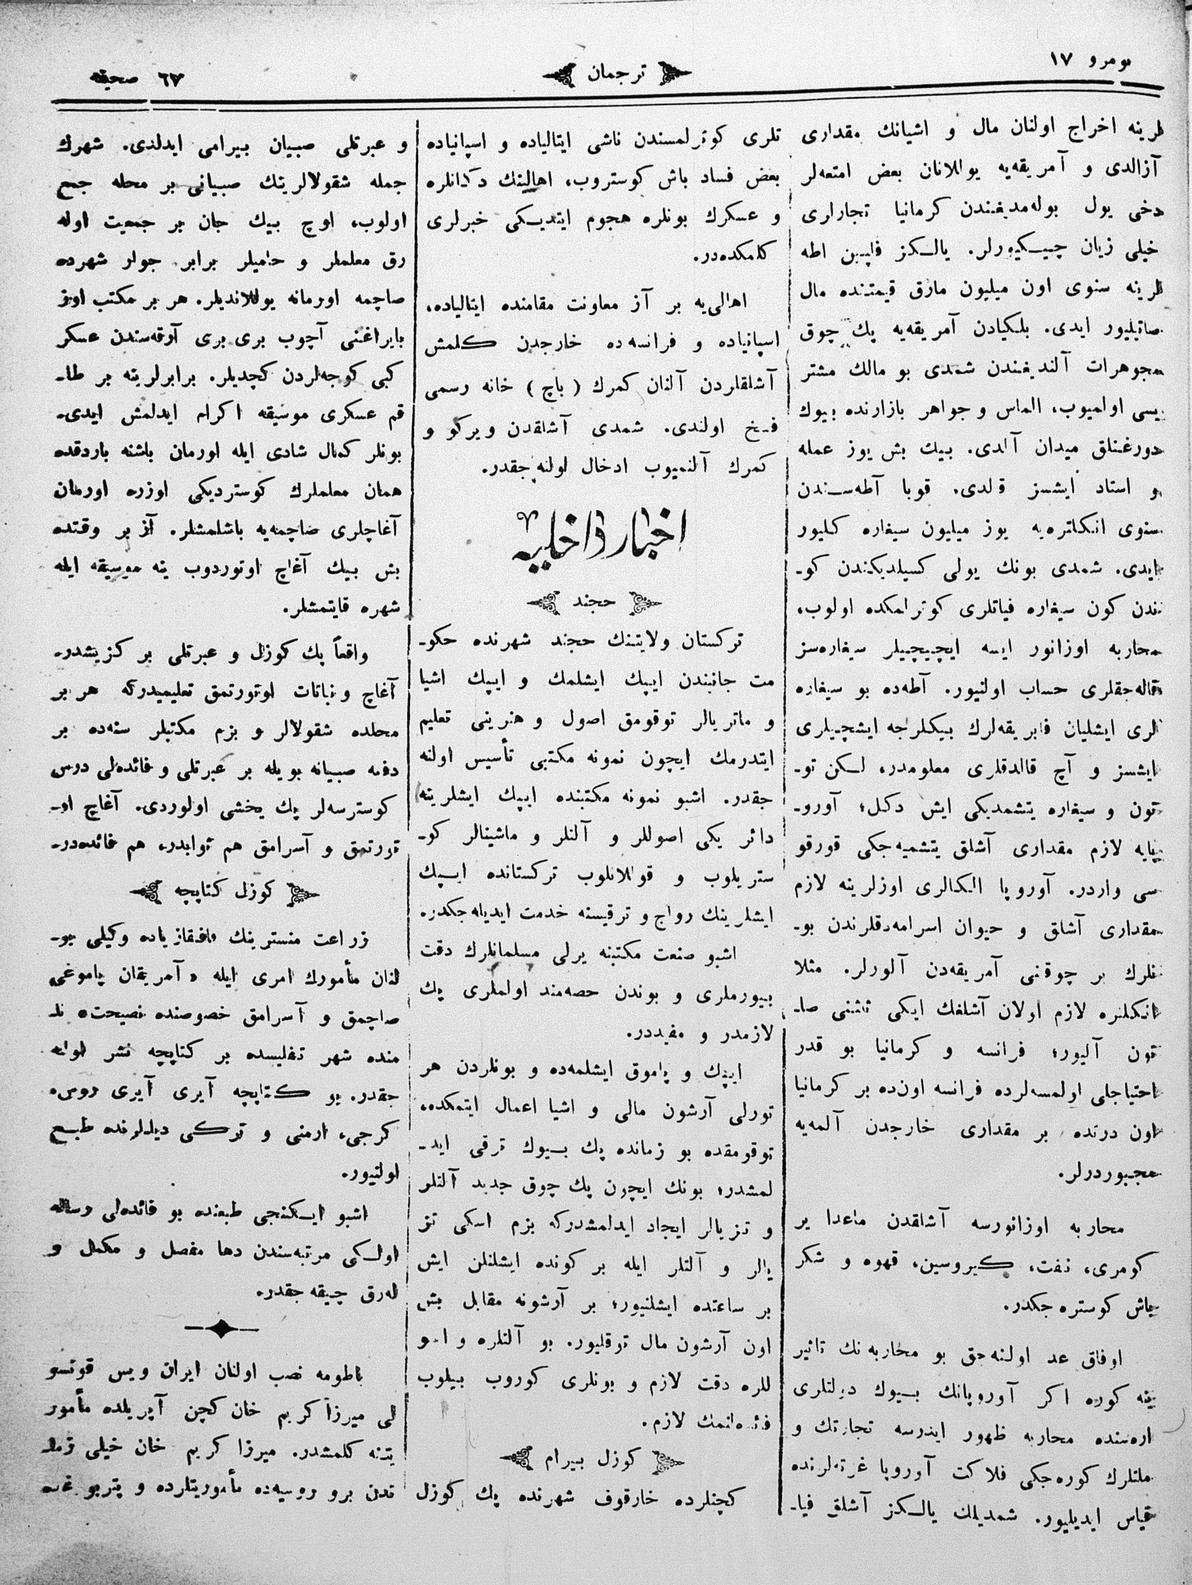 نومرو ١٧
ترجمان
٦٧ صحيفه
لرينه اخراج اولنان مال و اشيانك مقدارى
آزالدى و آمريقه‌يه يوللانان بعض امتعه‌لر
دخى يول بوله‌مديغندن كرمانيا تجارلرى
خيلى زيان چيكيورلر. يالكز فليپين اطه
لرينه سنوى اون ميليون مارق قيمتنده مال
صاتيليور ايدى. بلكيادن آمريقه‌يه پك چوق
مجوهرات آلنديغندن شمدى بو مالك مشتر
يسى اولميوب، الماس و جواهر بازارنده بيوك
دورغنلق ميدان آلدى. بيك بش يوز عمله
و استاد ايشسز قالدى. قوبا آطه‌سندن
سنوى انكلتره‌يه يوز ميليون سيغاره كليور
ايدى. شمدى بونك يولى كسيلديكندن كو-
ندن كون سيغاره فيأتلرى كوترلمكده اولوب،
محاربه اوزانور ايسه ايچيچيلر سيغاره‌سز
قاله‌جقلرى حساب اولنيور. آطه‌ده بو سيغاره
لرى ايشليان فابريقه‌لرك بيكلرجه ايشچيلرى
ايشسز و آچ قالدقلرى معلومدر، لكن تو-
تون و سيغاره يتشمديكى ايش دكل؛ آورو-
پايه لازم مقدارى آشلق يتشميه‌جكى قورقو
سى واردر. آوروپا الكالرى اوزلرينه لازم
مقدارى آشلق و حيوان اسرامه‌دقلرندن بو-
نلرك بر چوقنى آمريقه‌دن آلورلر. مثلا
انكلتره لازم اولان آشلغك ايكى ثلثنى صا-
تون آليور؛ فرانسه و كرمانيا بو قدر
احتياجلى اولمسه‌لرده فرانسه اون‌ده بر كرمانيا
اون درتده بر مقدارى خارجدن آلمه‌يه
مجبوردرلر.
محاربه اوزانورسه آشلقدن ماعدا ير
كومرى، نفت، كيروسين، قهوه و شكر
باش كوستره جكدر.
اوفاق عد اولنه‌جق بو محاربه‌نك تاثير
ينه كوره اكر آوروپانك بيوك دولتلرى
اره‌سنده محاربه ظهور ايدرسه تجارتك و
ملتلرك كوره‌جكى فلاكت آوروپا غزته‌لرنده
قياس ايديليور. شمديلك يالكز آشلق فيا-
تلرى كوترلمسندن ناشى ايتالياده و اسپانياده
بعض فساد باش كوستروب، اهالينك دكانلره
و عسكرك بونلره هجوم ايتديكى خبرلرى
كلمكده‌در.
اهالى‌يه بر آز معاونت مقامنده ايتالياده،
اسپانياده و فرانسه‌ده خارجدن كلمش
آشلقلردن آلنان كمرك ( باج ) خانه رسمى
فسخ اولندى. شمدى آشلقدن ويركو و
كمرك آلنميوب ادخال اولنه‌جقدر.
اخبار داخليه
حجند
تركستان ولايتنك حجند شهرنده حكو-
مت جانبندن ايپك ايشلمك و ايپك اشيا
و ماتريالر توقومق اصول و هنرينى تعليم
ايتدرمك ايچون نمونه مكتبى تأسيس اولنه
جقدر. اشبو نمونه مكتبنده ايپك ايشلرينه
دائر يكى اصوللر و آلتلر و ماشينالر كو-
ستريلوب و قوللانلوب تركستانده ايپك
ايشلرينك رواج و ترقيسنه خدمت ايديله‌جكدر.
اشبو صنعت مكتبنه يرلى مسلمانلرك دقت
بيورملرى و بوندن حصه‌مند اولملرى پك
لازمدر و مفيددر.
ايپك و پاموق ايشلمه‌ده و بونلردن هر
تورلى آرشون مالى و اشيا اعمال ايتمكده،
توقومقده بو زمانده پك بيوك ترقى ايد-
لمشدر؛ بونك ايچون پك چوق جديد آلتلر
و تزيالر ايجاد ايدلمشدركه بزم اسكى تز
يالر و آلتلر ايله بر كونده ايشلنلن ايش
بر ساعتده ايشلنيور؛ بر آرشونه مقابل بش
اون آرشون مال توقليور. بو آلتلره و اصو
للره دقت لازم و بونلرى كوروب بيلوب
فائده‌لنمك لازم.
كوزل بيرام
كچنلرده خارقوف شهرنده پك كوزل
و عبرتلى صبيان بيرامى ايدلدى. شهرك
جمله شقولالرينك صبيانى بر محله جمع
اولوب، اوچ بيك جان بر جمعيت اوله
رق معلملر و حاميلر برابر جوار شهرده
صاچمه اورمانه يوللانديلر. هر بر مكتب اوز
بايراغنى آچوب برى برى آرقه‌سندن عسكر
كبى كوچه‌لردن كچديلر. برابرلرينه بر طا-
قم عسكرى موسيقه اكرام ايدلمش ايدى.
بونلر كمال شادى ايله اورمان باشنه باردقده
همان معلملرك كوسترديكى اوزره اورمان
آغاچلرى صاچمه‌يه باشلمشلر. آز بر وقتده
بش بيك آغاچ اوتوردوب ينه موسيقه ايله
شهره قايتمشلر.
واقعاً پك كوزل و عبرتلى بر كزينشدر.
آغاچ و نباتات اوتورتمق تعليميدركه هر بر
محلده شقولالر و بزم مكتبلر سنه‌ده بر
دفعه صبيانه بويله بر عبرتلى و فائده‌لى درس
كوسترسه‌لر پك يخشى اولوردى. آغاچ او-
تورتمق و آسرامق هم ثوابدر، هم فائده‌در.
كوزل كتابچه
زراعت منسترينك قافقازياده وكيلى بو-
لنان مأمورك امرى ايله «آمريقان پاموغى
صاچمق و آسرامق خصوصنده نصيحت» نا-
منده شهر تفليسده بر كتابچه نشر اولنه
جقدر. بو كتابچه آيرى آيرى روس،
كرجى، ارمنى و تركى ديللرنده طبع
اولنيور.
اشبو ايكنجى طبعنده بو فائده‌لى رساله
اولكى مرتبه‌سندن دها مفصل و مكمل و
له‌رق چيقه جقدر.
باطومه نصب اولنان ايران ويس قونسو
لى ميرزا كريم خان كچن آپريلده مأمور
يتنه كلمشدر. ميرزا كريم خان خيلى زما-
ندن برو روسيه‌ده مأموريتلرده و پتربورغده